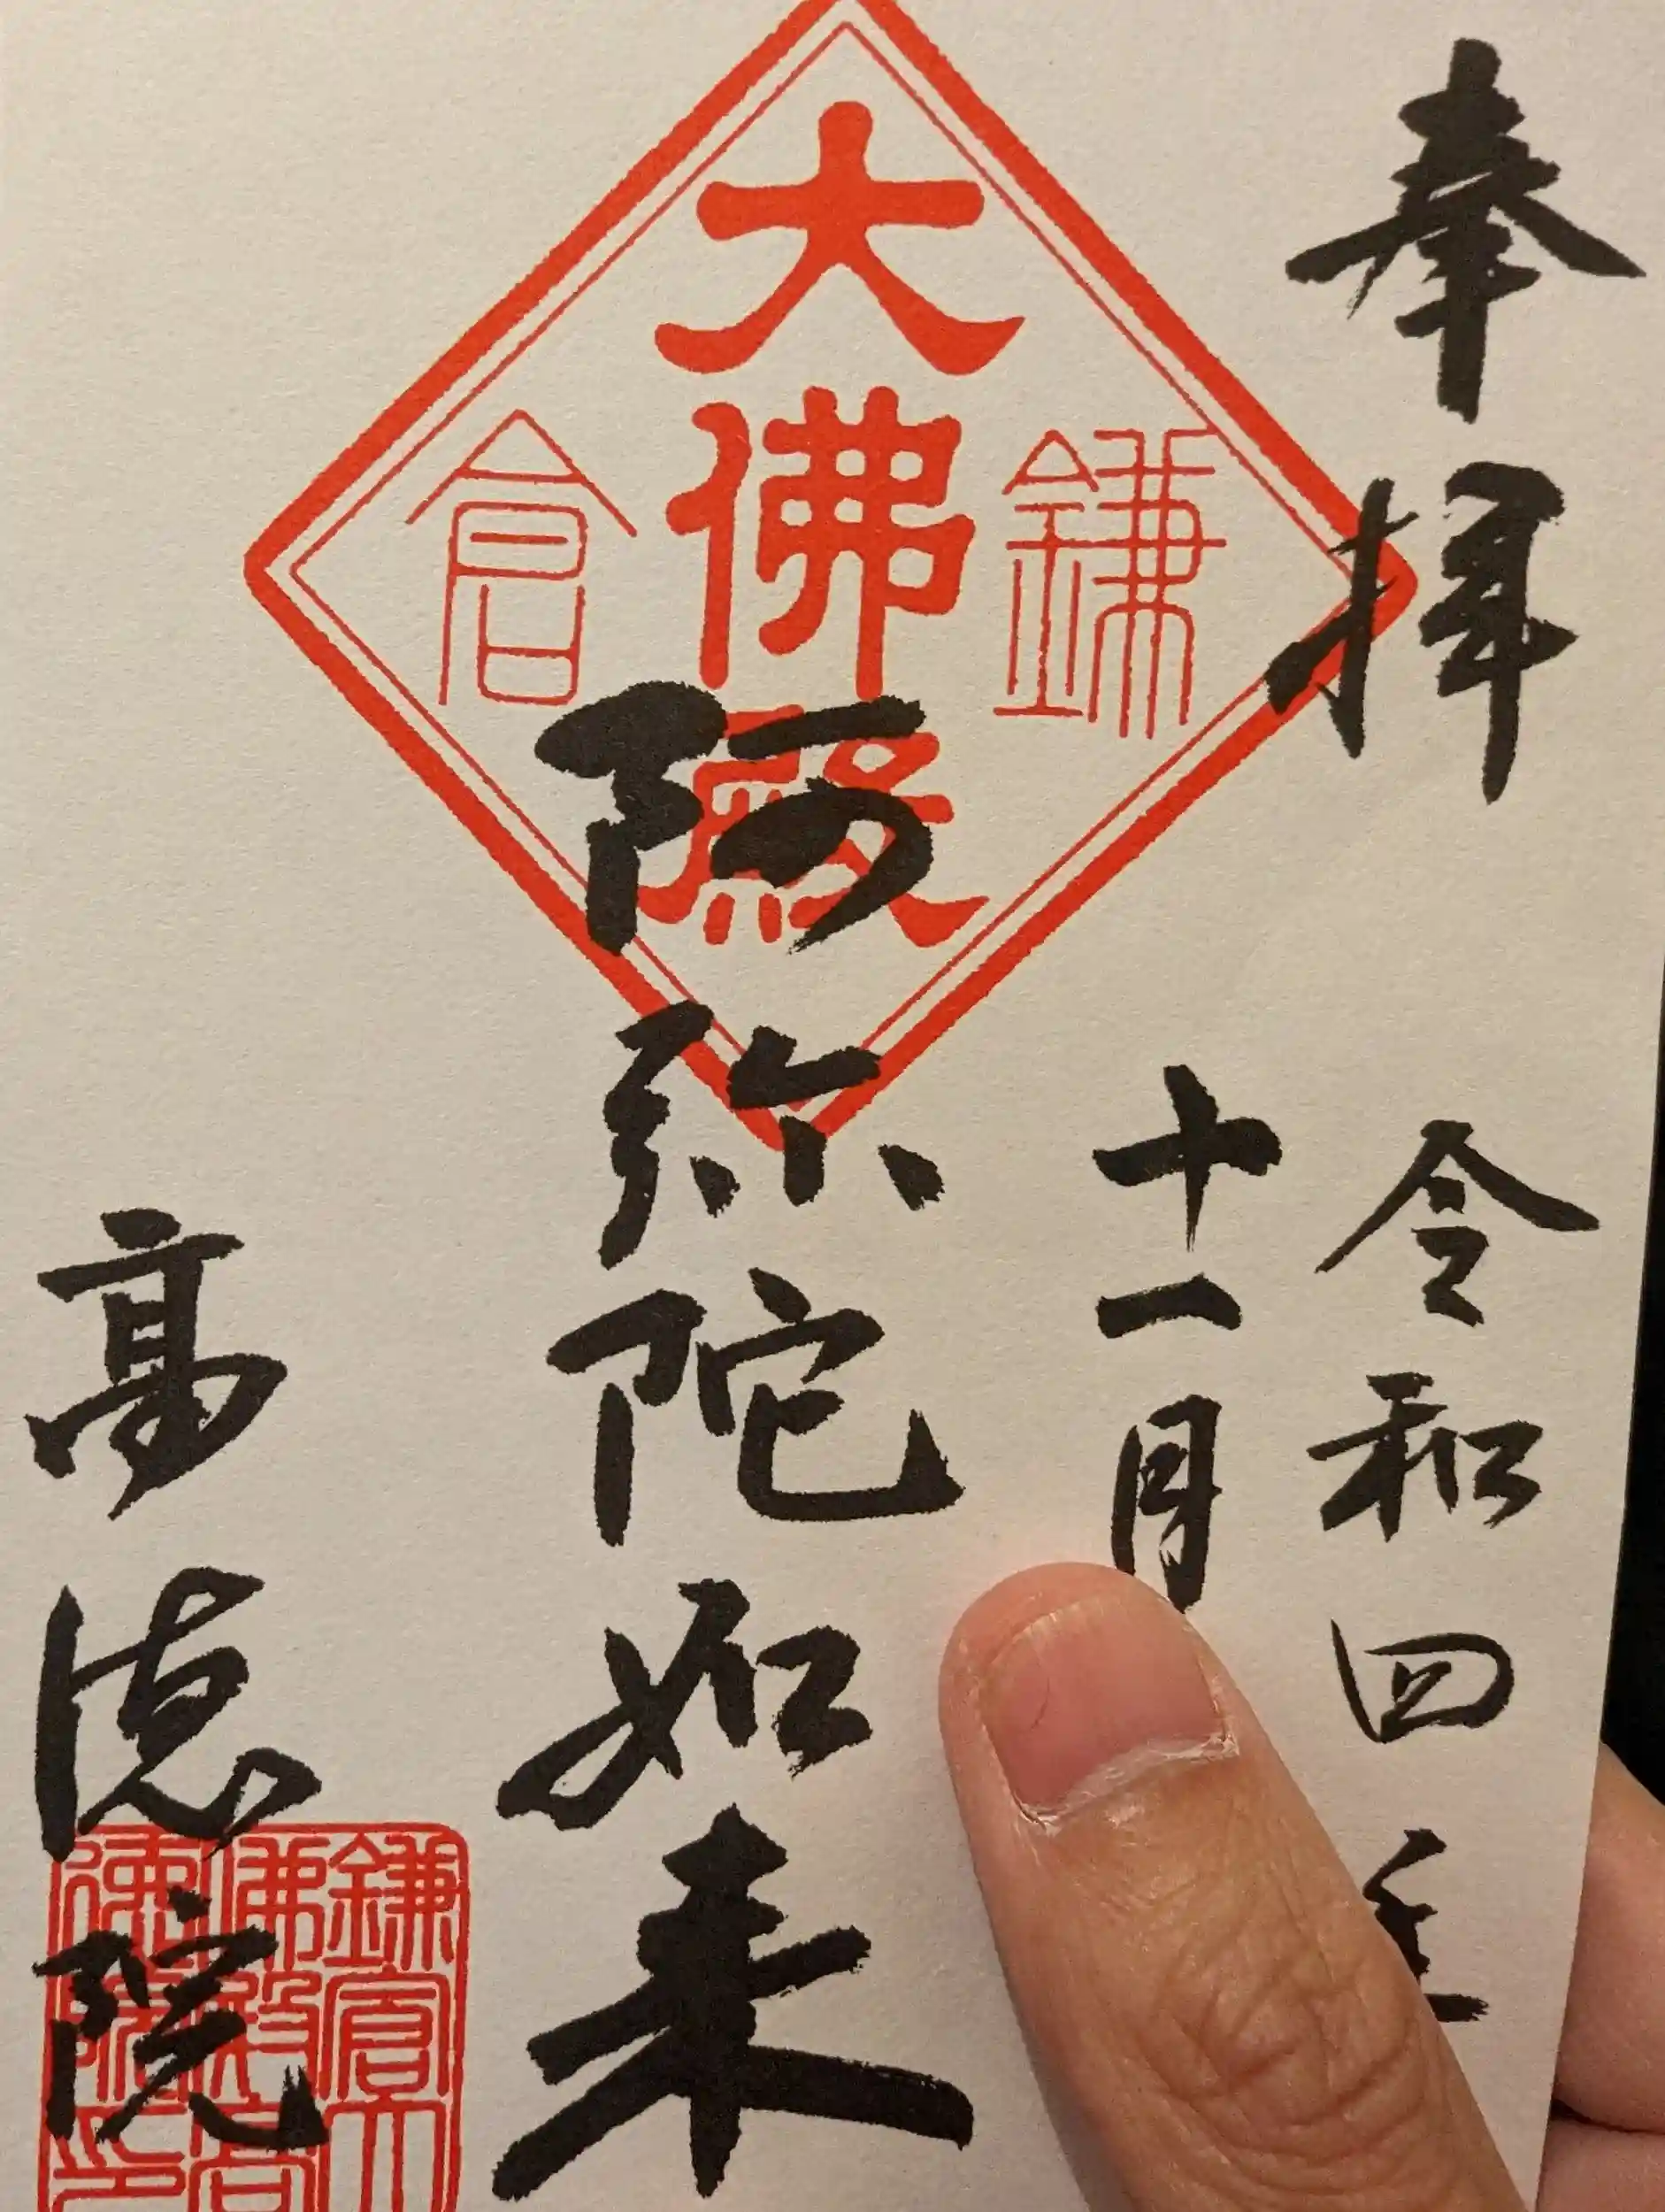 奉拝
令和四年
十一月
鎌倉
大佛殿
阿弥陀如来
高徳院
鎌倉大
佛殿高
徳院印